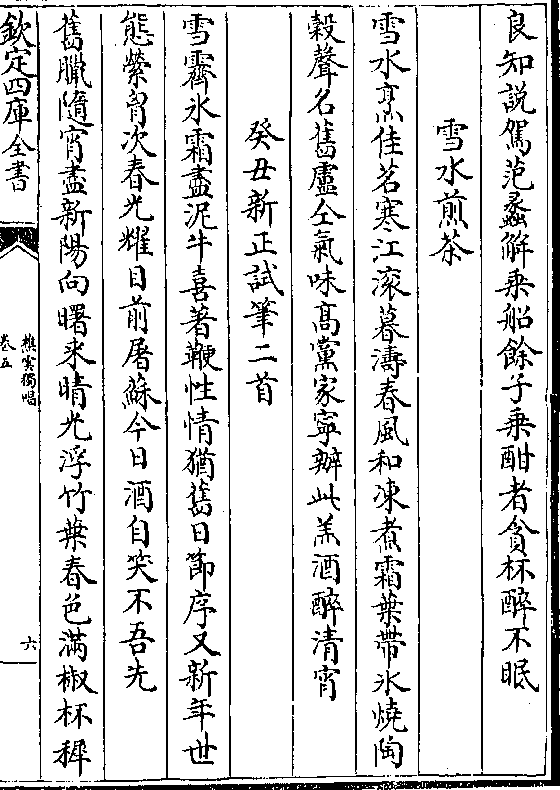 良知説駕范蠡解乗船餘子乗酣者貪杯醉不眠
雪水煎茶
雪水烹佳茗寒江滚暮濤春風和凍煮霜葉帶氷燒陶
穀聲名舊盧仝氣味髙黨家寧辦此羔酒醉清宵
癸丑新正試筆二首
雪霽氷霜盡泥牛喜著鞭性情猶舊日節序又新年世
態縈胷次春光耀目前屠蘇今日酒自笑不吾先
舊臘隨宵盡新陽向曙来晴光浮竹葉春色滿椒杯穉
欽定四庫全書
樵雲獨唱
卷五
六